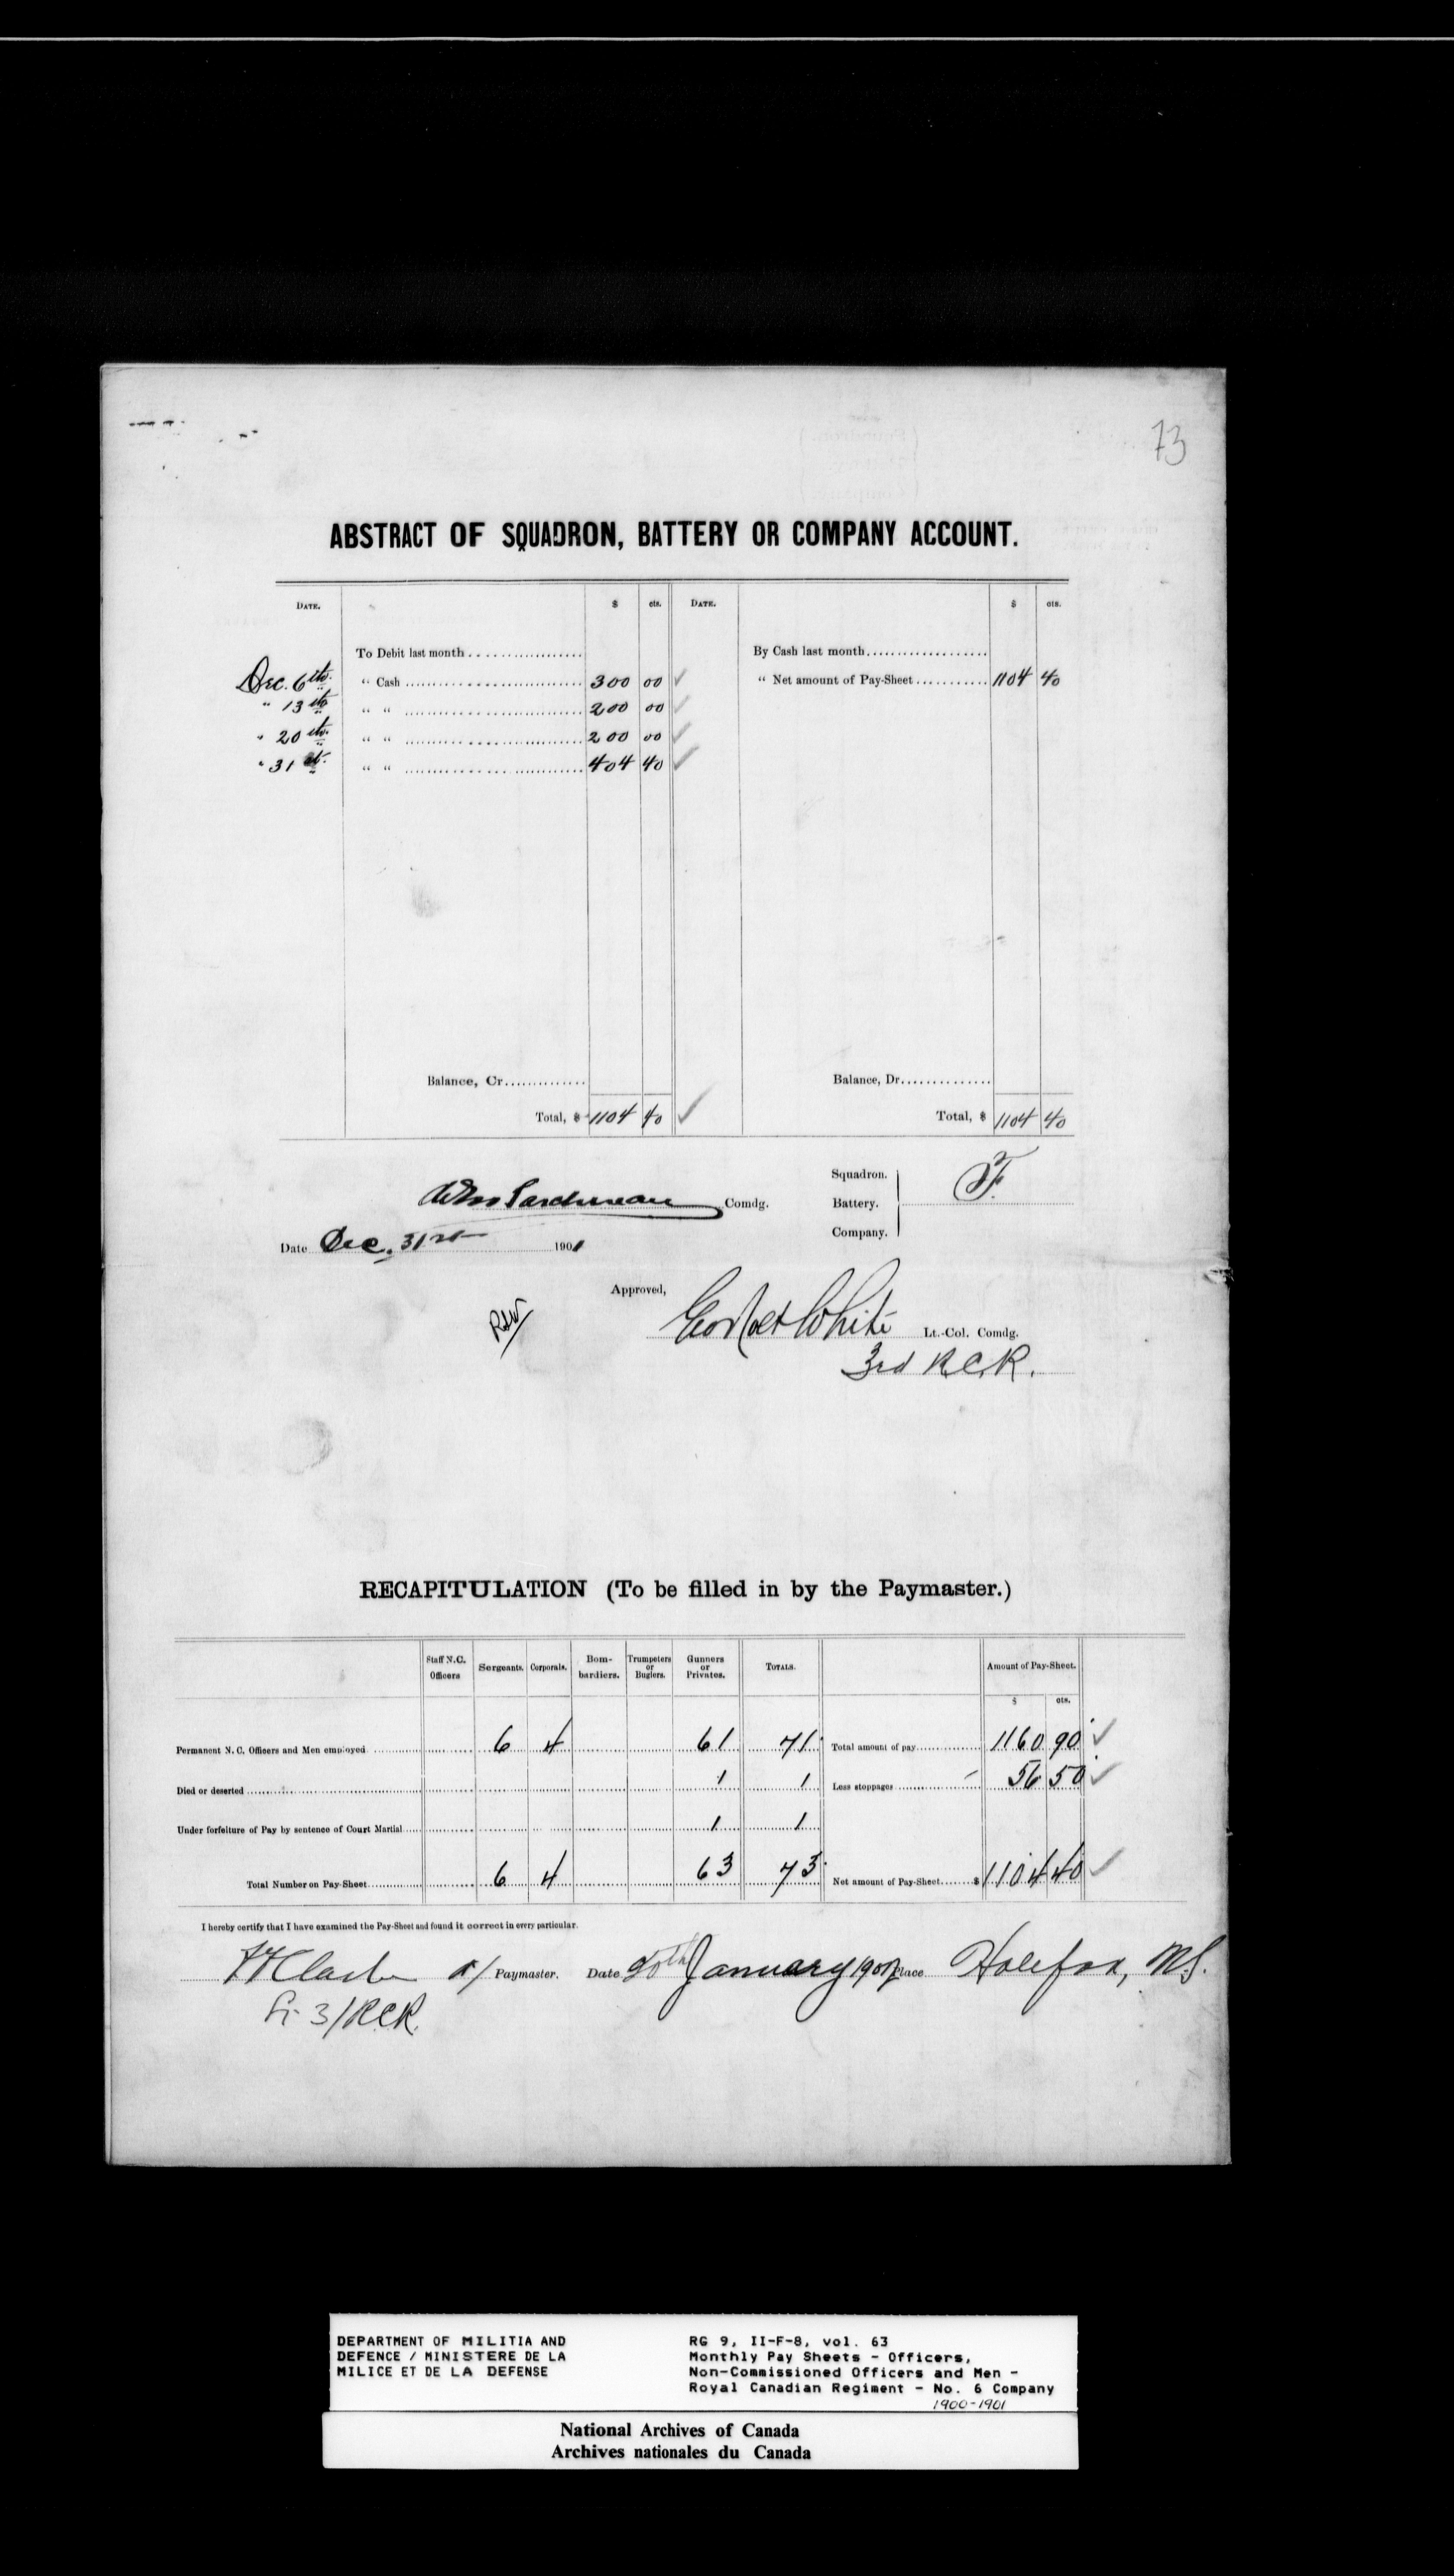 73
ABSTRACT OF SQUADRON, BATTERY OR COMPANY ACCOUNT.
DATE. $ cts. DATE. $ cts.
To Debit last month By Cash last month
Dec. 6th. " Cash 300 00 " Net amount of Pay-Sheet 1104 40
" 13th " " 200 00
" 20th. " " 200 00
" 31st. " " 404 40
Balance, Cr. Balance, Dr.
Total, $ 1104 40 Total, $ 1104 40
Squadron.
Comdg. Battery. F.
Company.
Date Dec. 31st 1901
Approved,
White Lt.-Col. Comdg.
3rd R.C.R.
RECAPITULATION (To be filled in by the Paymaster.)
Staff N.C. Officers Sergeants. Corporals. Bom-bardiers. Trumpeters or Buglers. Gunners or Privates. TOTALS. Amount of Pay-Sheet.
$ cts.
Permanent N. C. Officers and Men employed 6 4 61 71 Total amount of pay 1160 90
Died or deserted 1 1 Less stoppages 56 50
Under forfeiture of Pay by sentence of Court Martial 1 1
Total Number on Pay-Sheet 6 4 63 73 Net amount of Pay-Sheet $ 1104 40
I hereby certify that I have examined the Pay-Sheet and found it correct in every particular.
a/ Paymaster. Date 20th January 1902 Place Halifax, N.S.
3/RCR.
DEPARTMENT OF MILITIA AND
DEFENCE / MINISTERE DE LA
MILICE ET DE LA DEFENSE
RG 9, II-F-8, vol. 63
Monthly Pay Sheets - Officers,
Non-Commissioned Officers and Men -
Royal Canadian Regiment - No. 6 Company
1900-1901
National Archives of Canada
Archives nationales du Canada